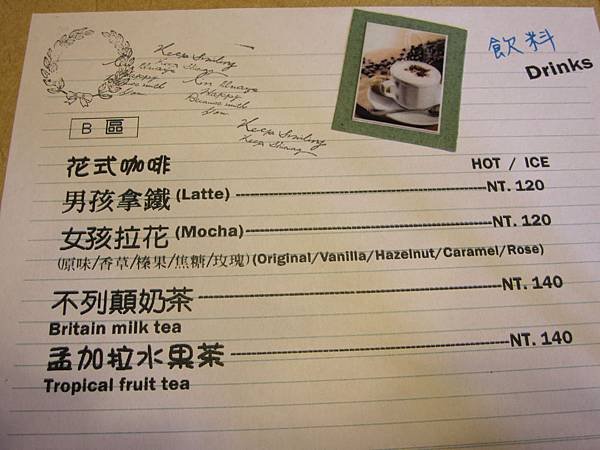 飲料
Drinks
Keep Smiling
Keep Smiling
B 區
花式咖啡 HOT / ICE
男孩拿鐵 (Latte) NT. 120
女孩拉花 (Mocha) NT. 120
(原味/香草/榛果/焦糖/玫瑰)(Original/Vanilla/Hazelnut/Caramel/Rose)
不列顛奶茶 NT. 140
Britain milk tea
孟加拉水果茶 NT. 140
Tropical fruit tea